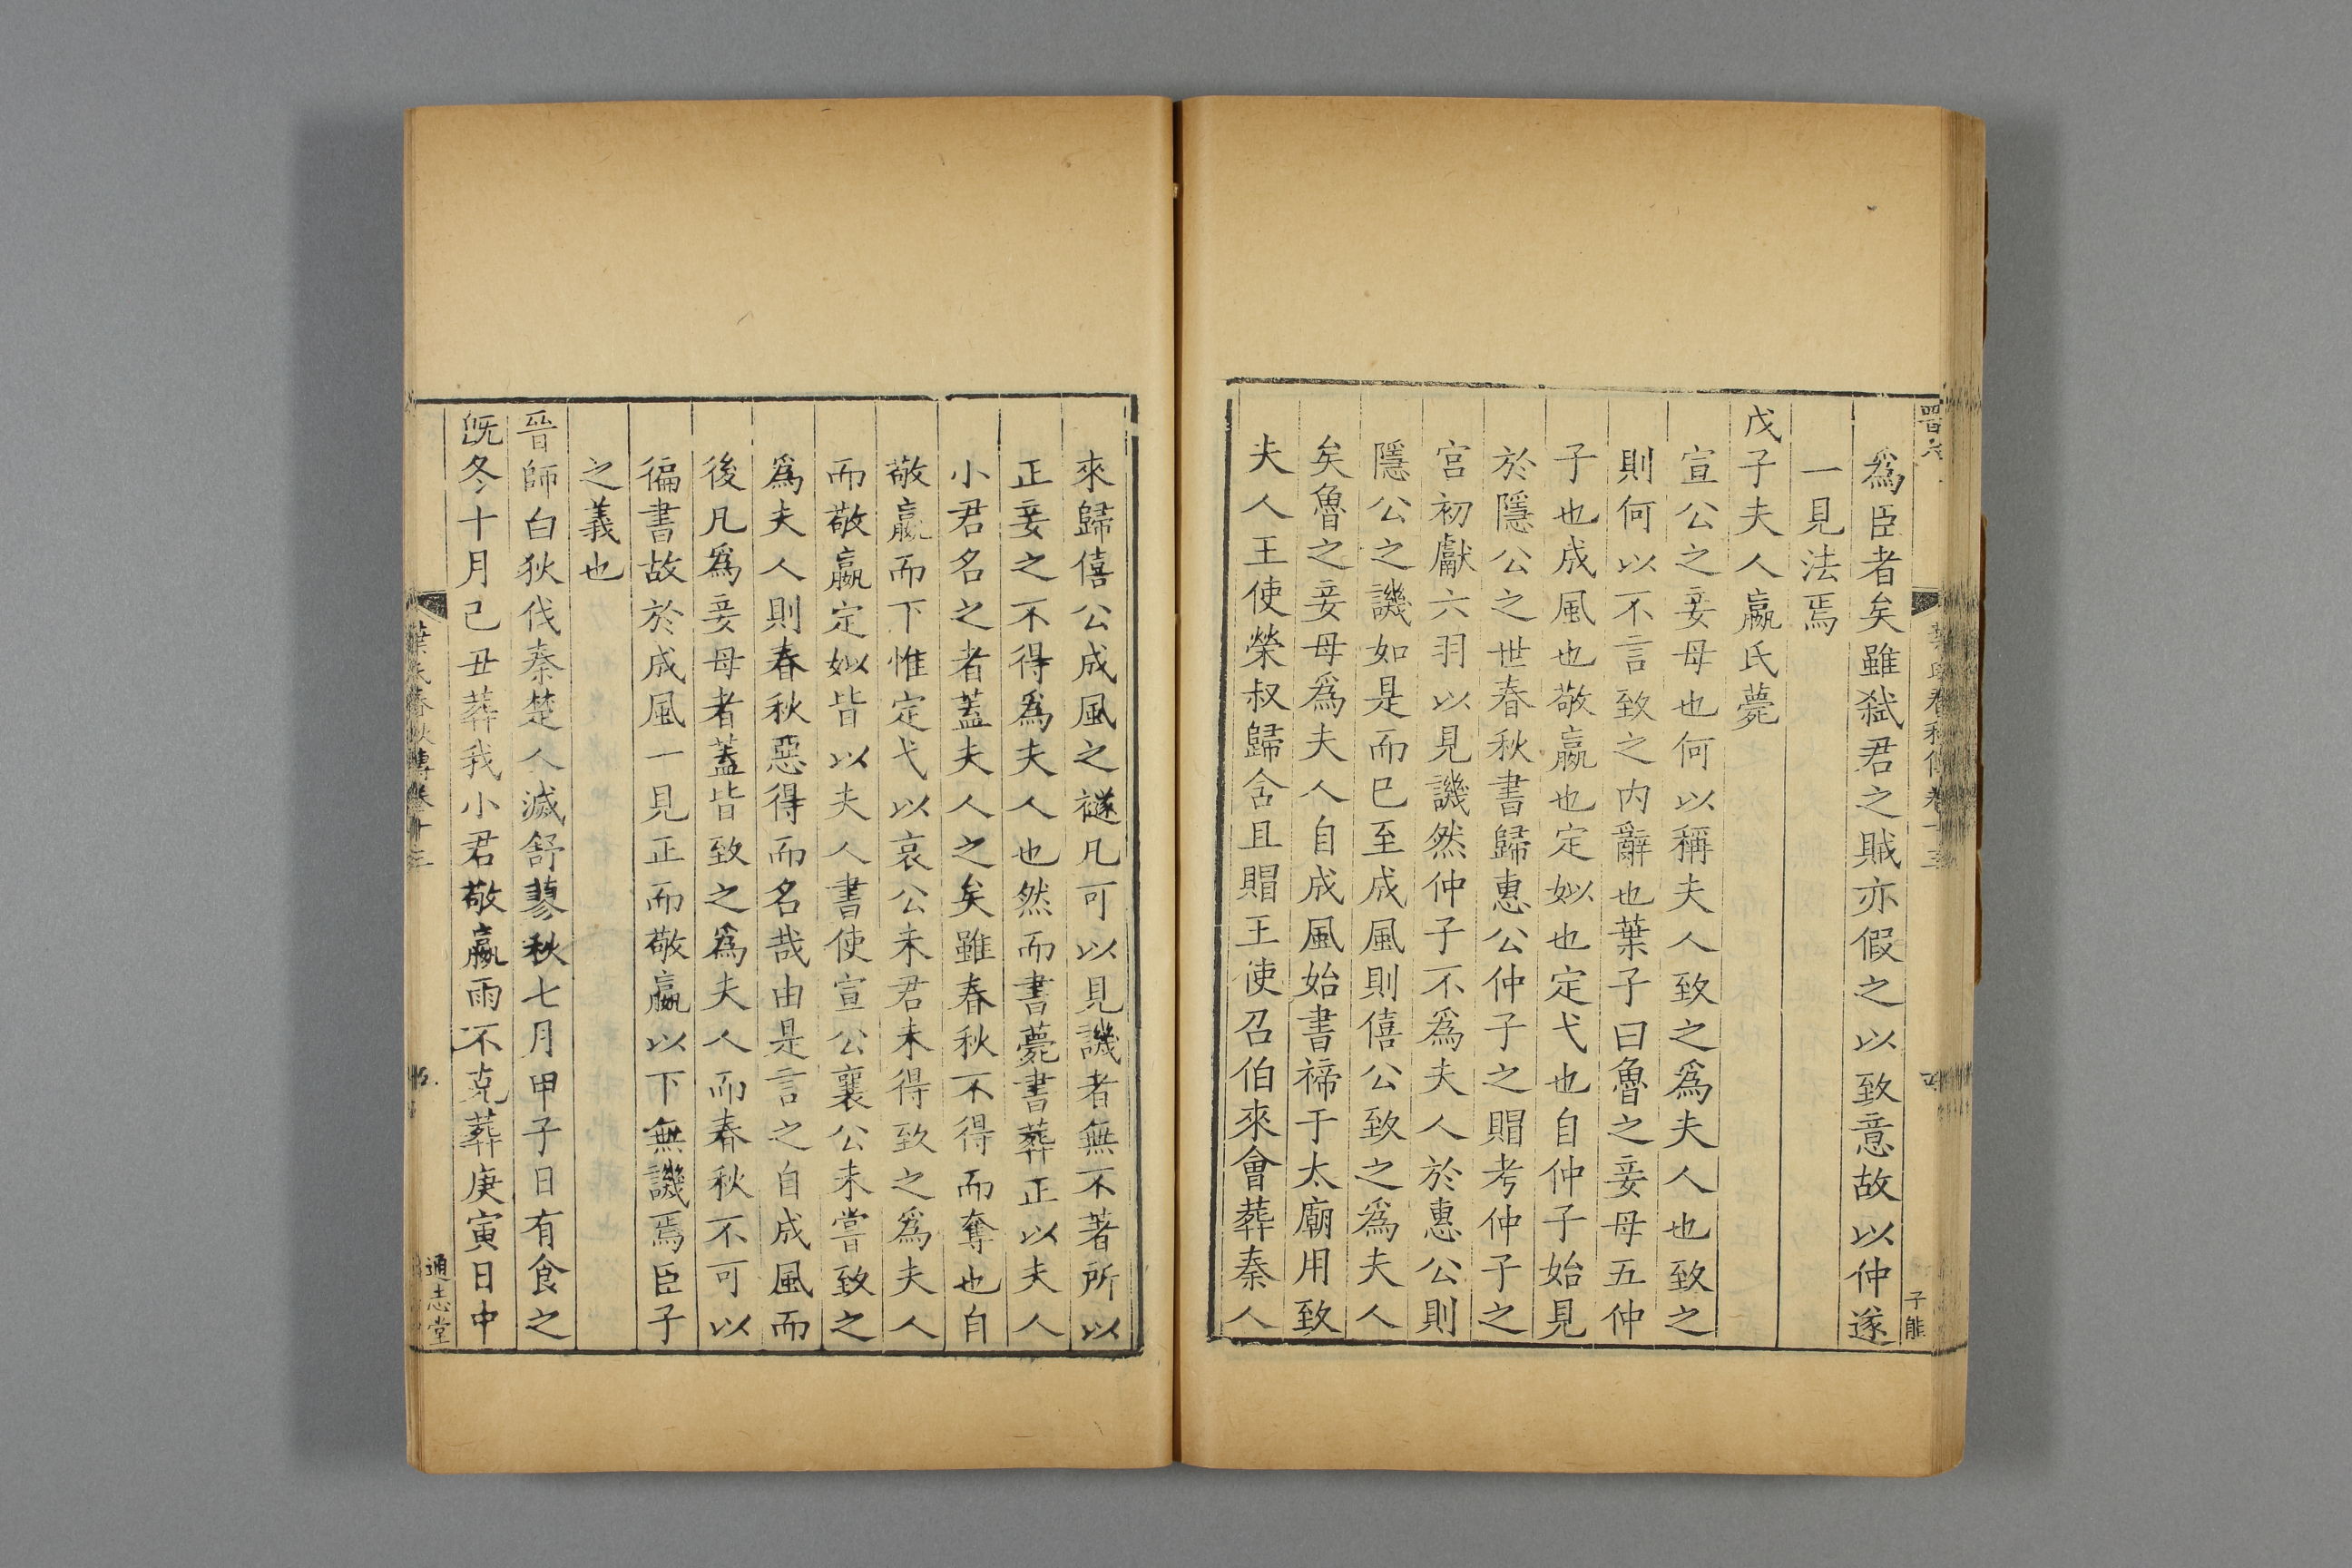 爲臣者矣雖弑君之賊亦假之以致意故以仲遂
一見法焉
戊子夫人嬴氏薨
宣公之妾母也何以稱夫人致之爲夫人也致之
則何以不言致之內辭也葉子曰魯之妾母五仲
子也成風也敬嬴也定姒也定弋也自仲子始見
於隱公之世春秋書歸惠公仲子之賵考仲子之
宮初獻六羽以見譏然仲子不爲夫人於惠公則
隱公之譏如是而已至成風則僖公致之爲夫人
矣魯之妾母爲夫人自成風始書禘于太廟用致
夫人王使榮叔歸含且賵王使召伯來會葬秦人
來歸僖公成風之襚凡可以見譏者無不著所以
正妾之不得爲夫人也然而書薨書葬正以夫人
小君名之者蓋夫人之矣雖春秋不得而奪也自
敬嬴而下惟定弋以哀公未君未得致之爲夫人
而敬嬴定姒皆以夫人書使宣公襄公未嘗致之
爲夫人則春秋惡得而名哉由是言之自成風而
後凡爲妾母者蓋皆致之爲夫人而春秋不可以
徧書故於成風一見正而敬嬴以下無譏焉臣子
之義也
晉師白狄伐秦楚人滅舒蓼秋七月甲子日有食之
旣冬十月己丑葬我小君敬嬴雨不克葬庚寅日中
葉氏春秋傳卷十三
通志堂